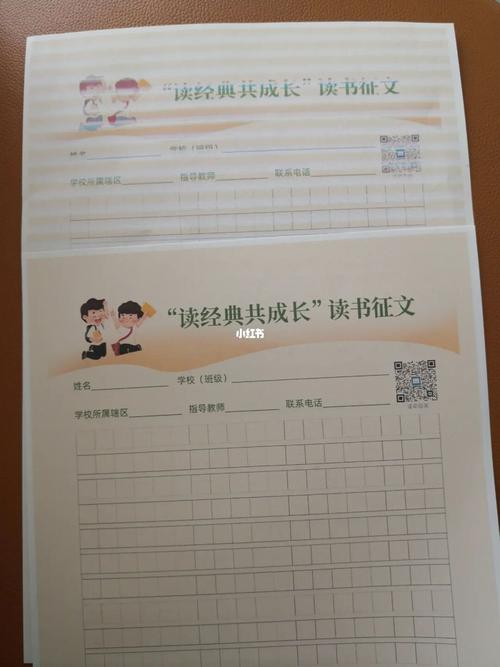 “读经典共成长”读书征文
姓名 学校（班级）
学校所属辖区 指导教师 联系电话
“读经典共成长”读书征文
小红书
姓名 学校（班级）
学校所属辖区 指导教师 联系电话